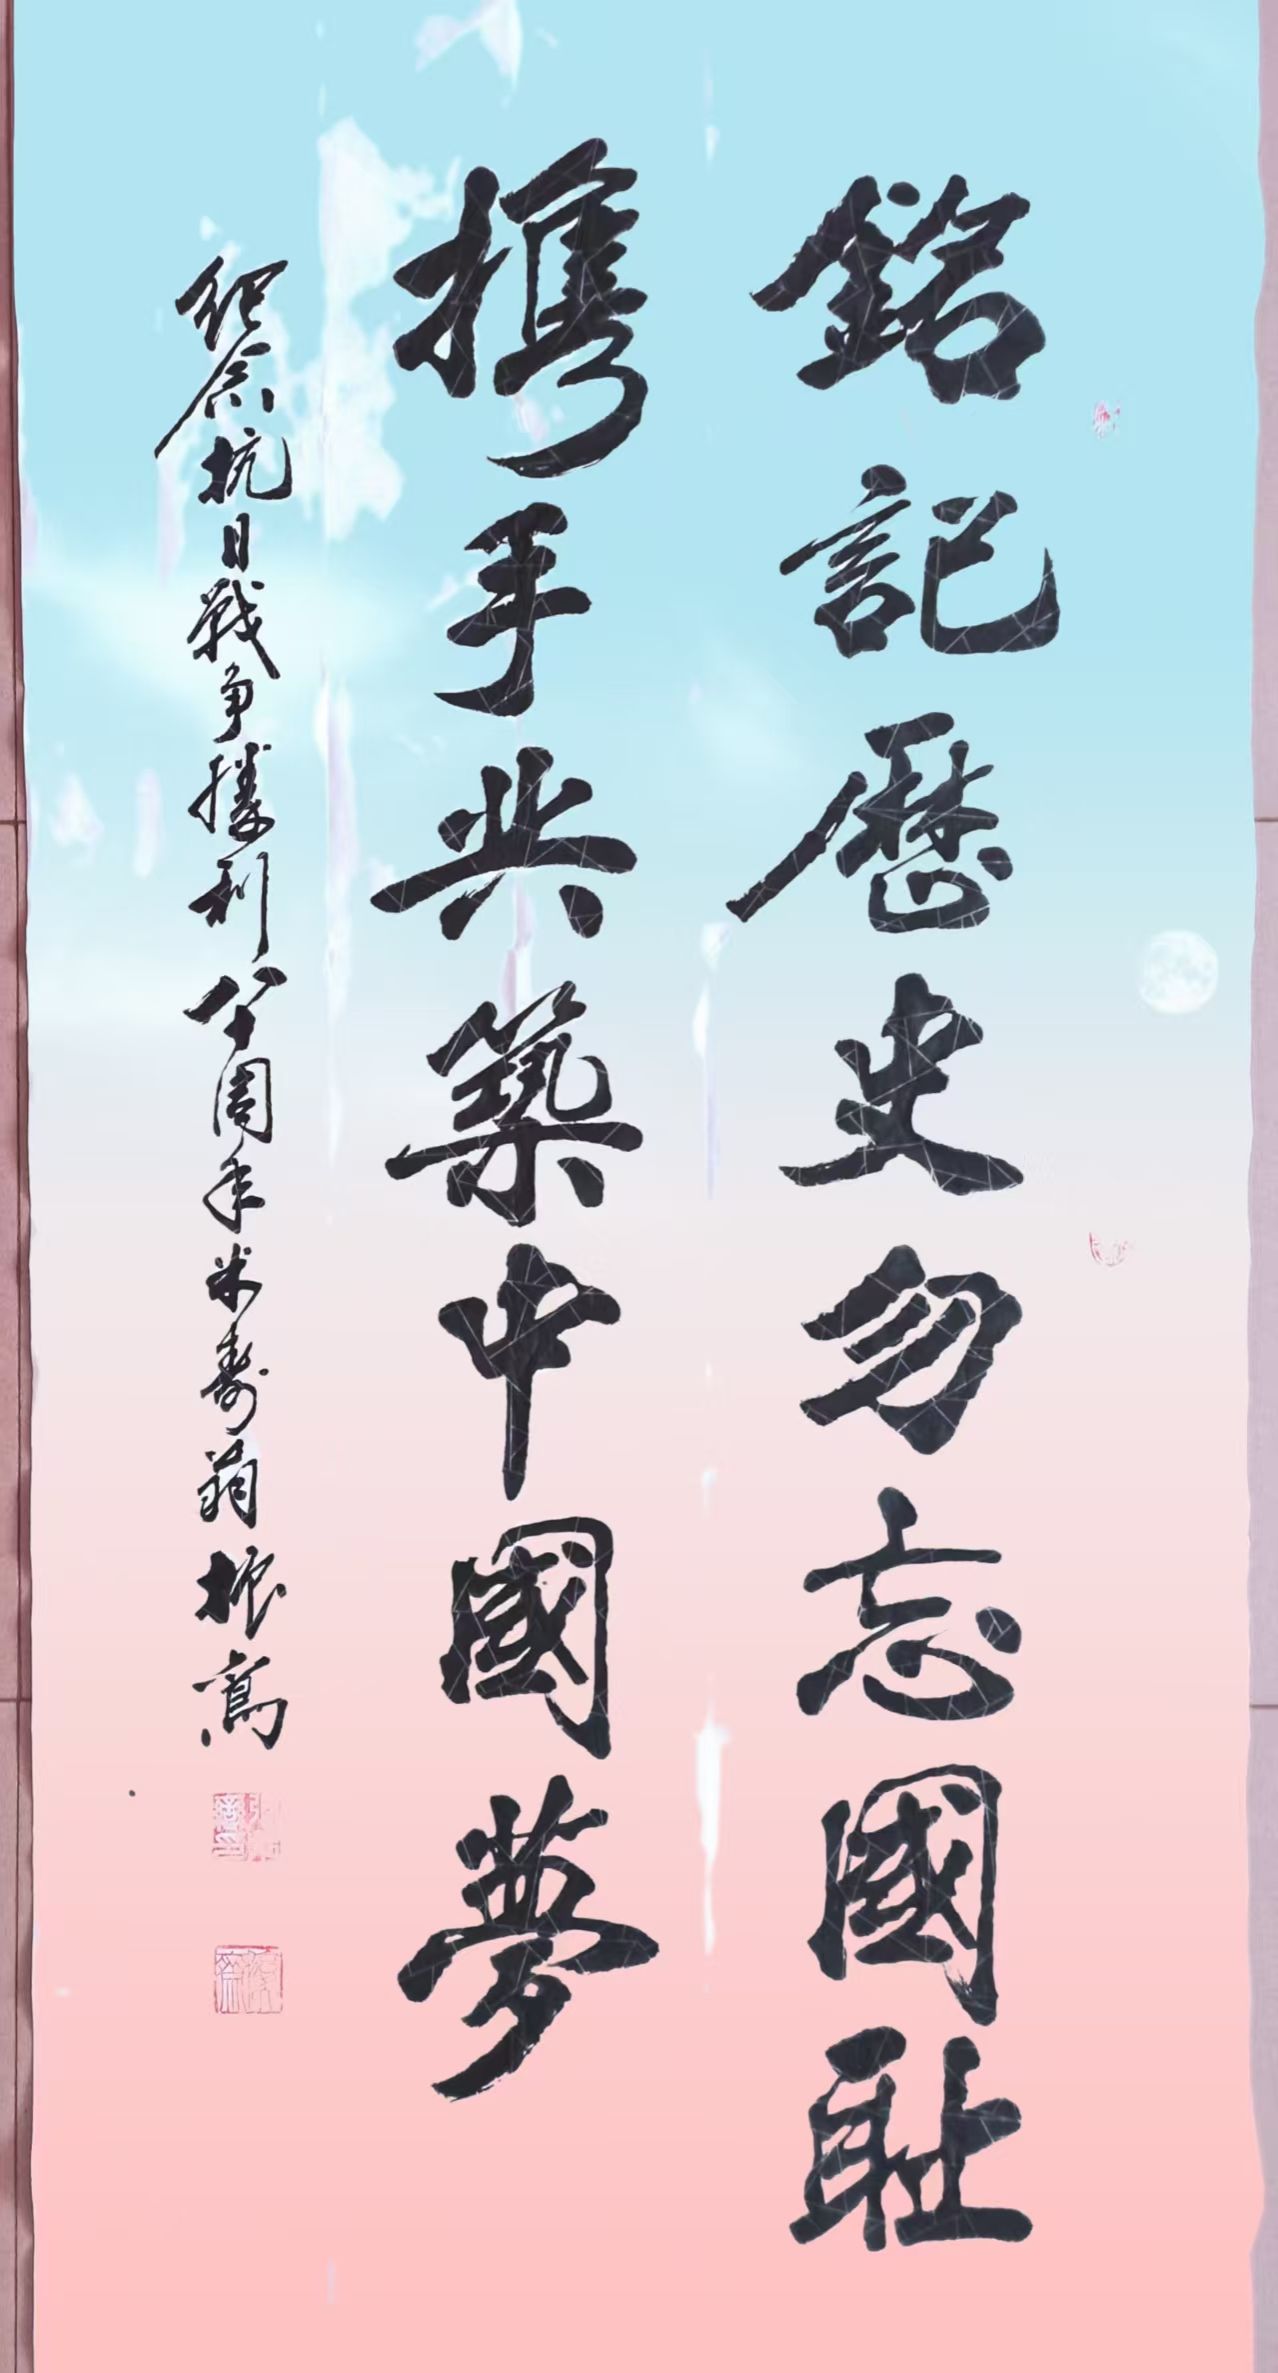 銘記歷史勿忘國耻
携手共築中國夢
紀念抗日戰争勝利八十周年米壽翁振